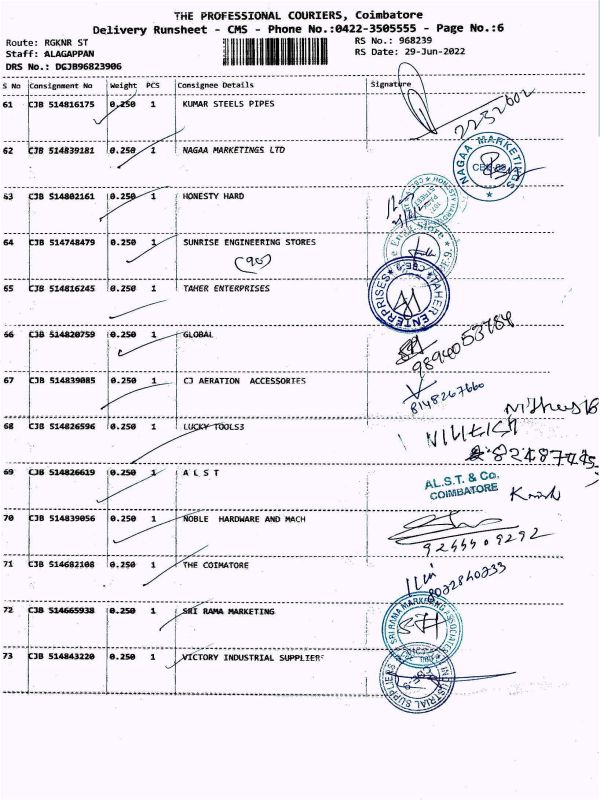 THE PROFESSIONAL COURIERS, Coimbatore
Delivery Runsheet - CMS - Phone No.:0422-3505555 - Page No.:6
Route: RGKNR ST RS No.: 968239
Staff: ALAGAPPAN RS Date: 29-Jun-2022
DRS No.: DGJB96823906
S No Consignment No Weight PCS Consignee Details Signature
61 CJB 514816175 0.250 1 KUMAR STEELS PIPES
2232602
62 CJB 514839181 0.250 1 NAGAA MARKETINGS LTD
NAGAA MARKETINGS
63 CJB 514802161 0.250 1 HONESTY HARD
64 CJB 514748479 0.250 1 SUNRISE ENGINEERING STORES
(90)
65 CJB 514816245 0.250 1 TAHER ENTERPRISES
TAHER ENTERPRISES
66 CJB 514820759 0.250 1 GLOBAL
67 CJB 514839085 0.250 1 CJ AERATION ACCESSORIES
8148267660
68 CJB 514826596 0.250 1 LUCKY TOOLS3
69 CJB 514826619 0.250 1 A L S T
AL.S.T. & Co.
COIMBATORE
70 CJB 514839056 0.250 1 NOBLE HARDWARE AND MACH
71 CJB 514682108 0.250 1 THE COIMATORE
72 CJB 514665938 0.250 1 SRI RAMA MARKETING
73 CJB 514843220 0.250 1 VICTORY INDUSTRIAL SUPPLIERS